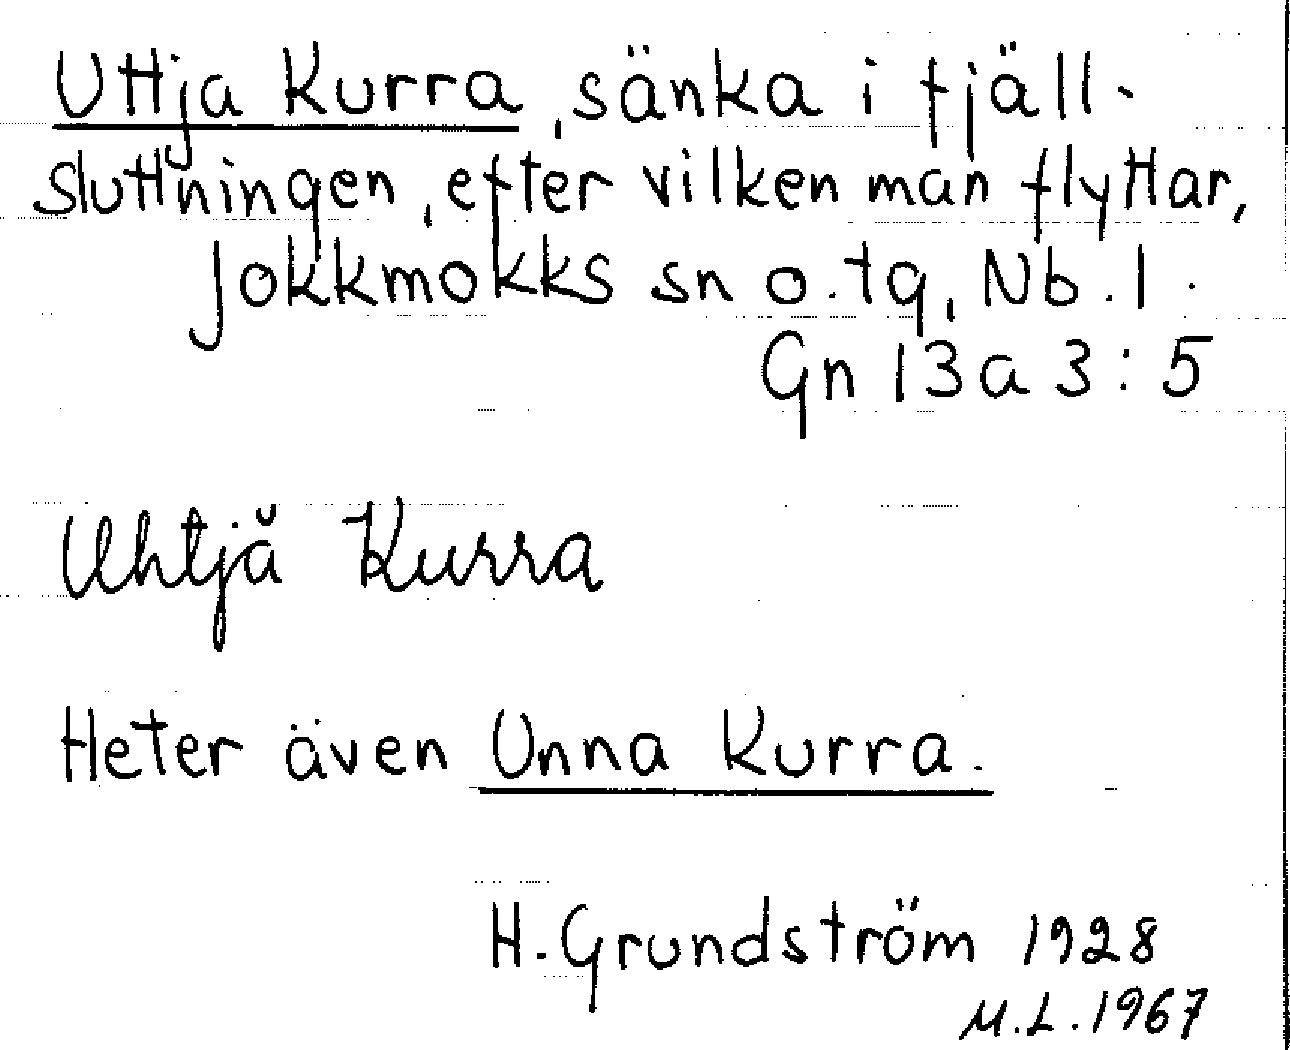 Uttja Kurra, sänka i fjäll-
sluttningen, efter vilken man flyttar,
Jokkmokks sn o. tg, Nb. l.
Gn 13 a 3 : 5
Uhtjă Kurra
Heter även Unna Kurra.
H. Grundström 1928
M.L. 1967